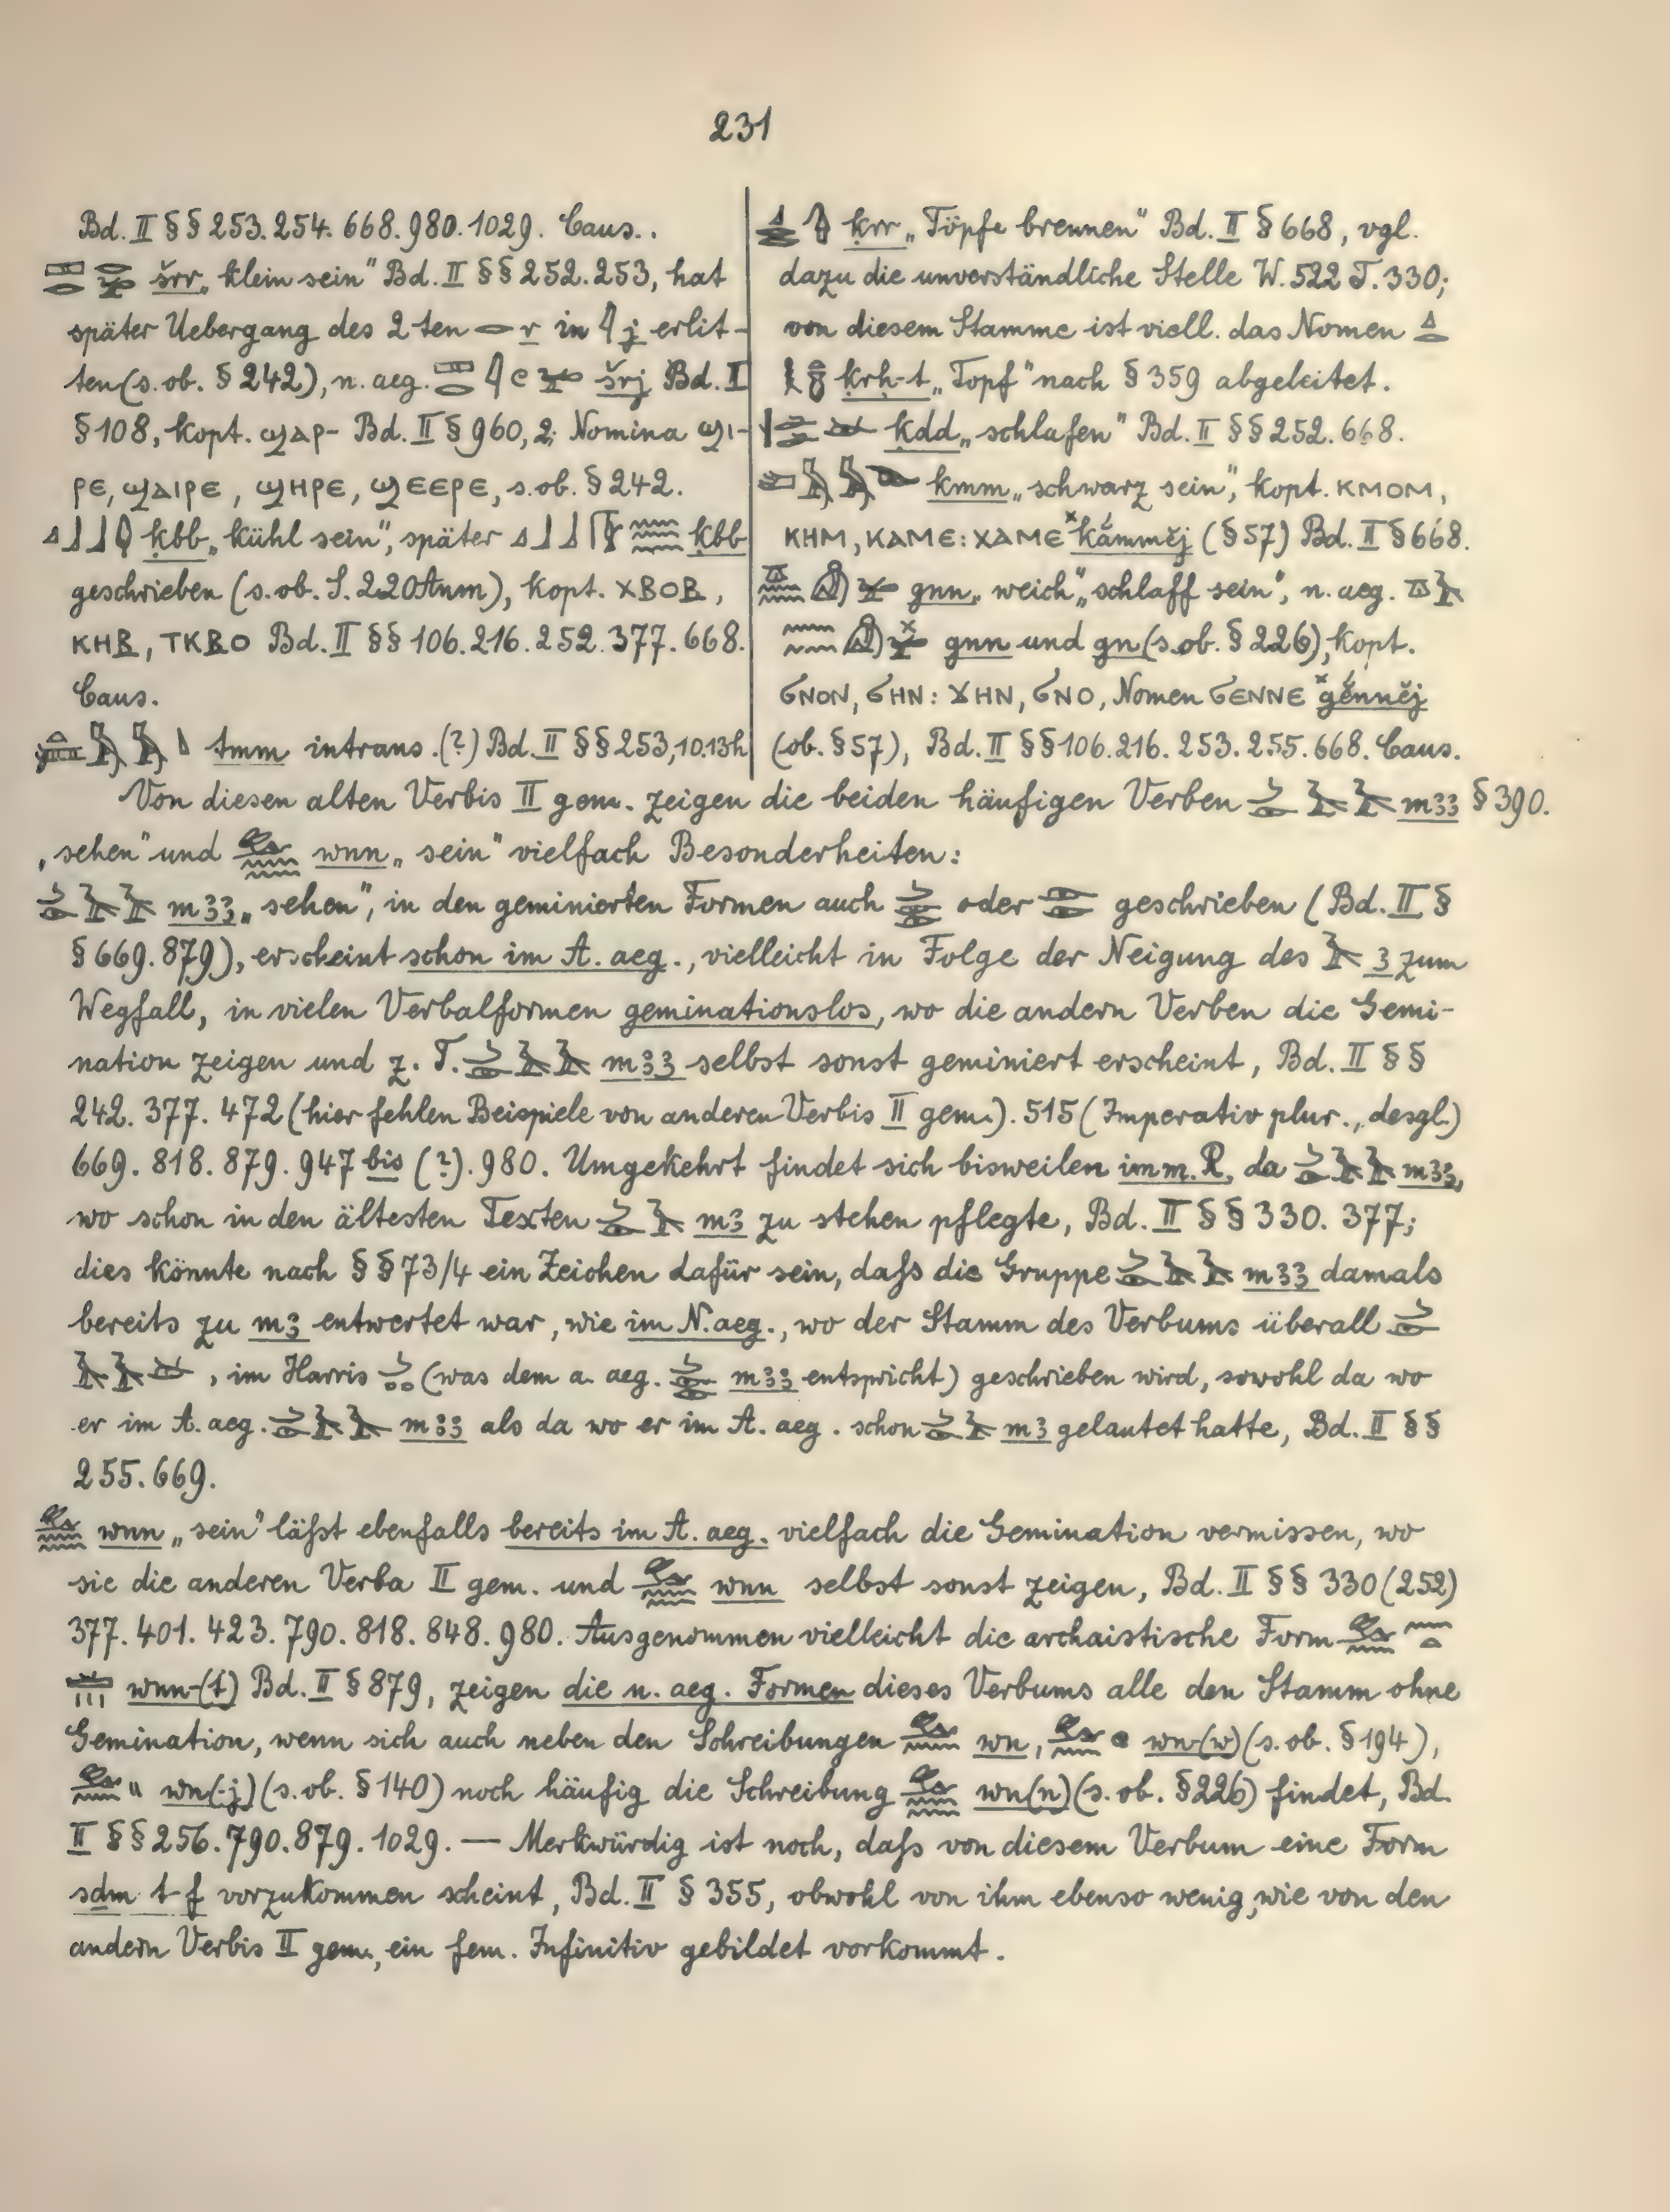 231
Bd. II §§ 253. 254. 668. 980. 1029. Caus..
šrr „klein sein" Bd. II §§ 252. 253, hat
später Uebergang des 2 ten 𓂋 r in 𓇋 j erlit-
ten (s. ob. § 242), n. aeg. šrj Bd. I
§ 108, kopt. ϣⲁⲣ- Bd. II § 960, 2; Nomina ϣⲓ-
ⲣⲉ, ϣⲁⲓⲣⲉ, ϣⲏⲣⲉ, ϣⲉⲉⲣⲉ, s. ob. § 242.
ḳbb „kühl sein", später ḳbb
geschrieben (s. ob. S. 220 Anm), kopt. ⲭⲃⲟⲃ,
ⲕⲏⲃ, ⲧⲕⲃⲟ Bd. II §§ 106. 216. 252. 377. 668.
Caus.
tmm intrans. (?) Bd. II §§ 253, 10. 13h
ḳrr „Töpfe brennen" Bd. II § 668, vgl.
dazu die unverständliche Stelle W. 522 T. 330;
von diesem Stamme ist viell. das Nomen
ḳrḥ-t „Topf" nach § 359 abgeleitet.
ḳdd „schlafen" Bd. II §§ 252. 668.
kmm „schwarz sein", kopt. ⲕⲙⲟⲙ,
ⲕⲏⲙ, ⲕⲁⲙⲉ: ⲭⲁⲙⲉ ˣkắmmĕj (§ 57) Bd. II § 668.
gnn „weich", „schlaff sein", n. aeg.
gnn und gn (s. ob. § 226), kopt.
ϭⲛⲟⲛ, ϭⲏⲛ: ϫⲏⲛ, ϭⲛⲟ, Nomen ϭⲉⲛⲛⲉ ˣgĕ́nnĕj
(ob. § 57), Bd. II §§ 106. 216. 253. 255. 668. Caus.
Von diesen alten Verbis II gem. zeigen die beiden häufigen Verben 𓌳𓄿𓄿 mꜣꜣ § 390.
„sehen" und wnn „sein" vielfach Besonderheiten:
mꜣꜣ „sehen", in den geminierten Formen auch oder geschrieben (Bd. II §
§ 669. 879), erscheint schon im A. aeg., vielleicht in Folge der Neigung des 𓄿 ꜣ zum
Wegfall, in vielen Verbalformen geminationslos, wo die andern Verben die Gemi-
nation zeigen und z. T. mꜣꜣ selbst sonst geminiert erscheint, Bd. II §§
242. 377. 472 (hier fehlen Beispiele von anderen Verbis II gem.). 515 (Imperativ plur., desgl.)
669. 818. 879. 947 bis (?). 980. Umgekehrt findet sich bisweilen im m. R. da mꜣꜣ,
wo schon in den ältesten Texten mꜣ zu stehen pflegte, Bd. II §§ 330. 377;
dies könnte nach §§ 73/4 ein Zeichen dafür sein, daſs die Gruppe mꜣꜣ damals
bereits zu mꜣ entwertet war, wie im N. aeg., wo der Stamm des Verbums überall
, im Harris (was dem a. aeg. mꜣꜣ entspricht) geschrieben wird, sowohl da wo
er im A. aeg. mꜣꜣ als da wo er im A. aeg. schon mꜣ gelautet hatte, Bd. II §§
255. 669.
wnn „sein" läſst ebenfalls bereits im A. aeg. vielfach die Gemination vermissen, wo
sie die anderen Verba II gem. und wnn selbst sonst zeigen, Bd. II §§ 330 (252)
377. 401. 423. 790. 818. 848. 980. Ausgenommen vielleicht die archaistische Form
wnn-(t) Bd. II § 879, zeigen die n. aeg. Formen dieses Verbums alle den Stamm ohne
Gemination, wenn sich auch neben den Schreibungen wn, wn(w) (s. ob. § 194),
wn(-j) (s. ob. § 140) noch häufig die Schreibung wn(n) (s. ob. § 226) findet, Bd.
II §§ 256. 790. 879. 1029. — Merkwürdig ist noch, daſs von diesem Verbum eine Form
sdm-t-f vorzukommen scheint, Bd. II § 355, obwohl von ihm ebenso wenig, wie von den
andern Verbis II gem., ein fem. Infinitiv gebildet vorkommt.